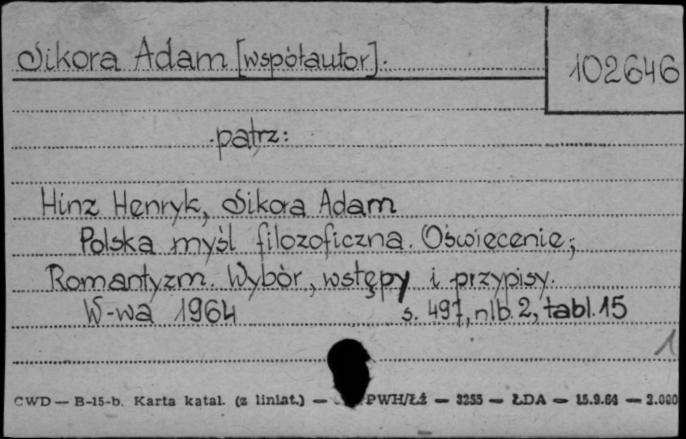 Sikora Adam [współautor].
102646
patrz:
Hinz Henryk, Sikora Adam
Polska myśl filozoficzna. Oświęcenie,
Romantyzm. Wybór, wstępy i przypisy.
W-wa 1964 s. 497, nlb. 2, tabl. 15
1
CWD — B-15-b. Karta katal. (z liniat.) — PWH/Łż — 3255 — ŁDA — 15.9.64 — 2.000